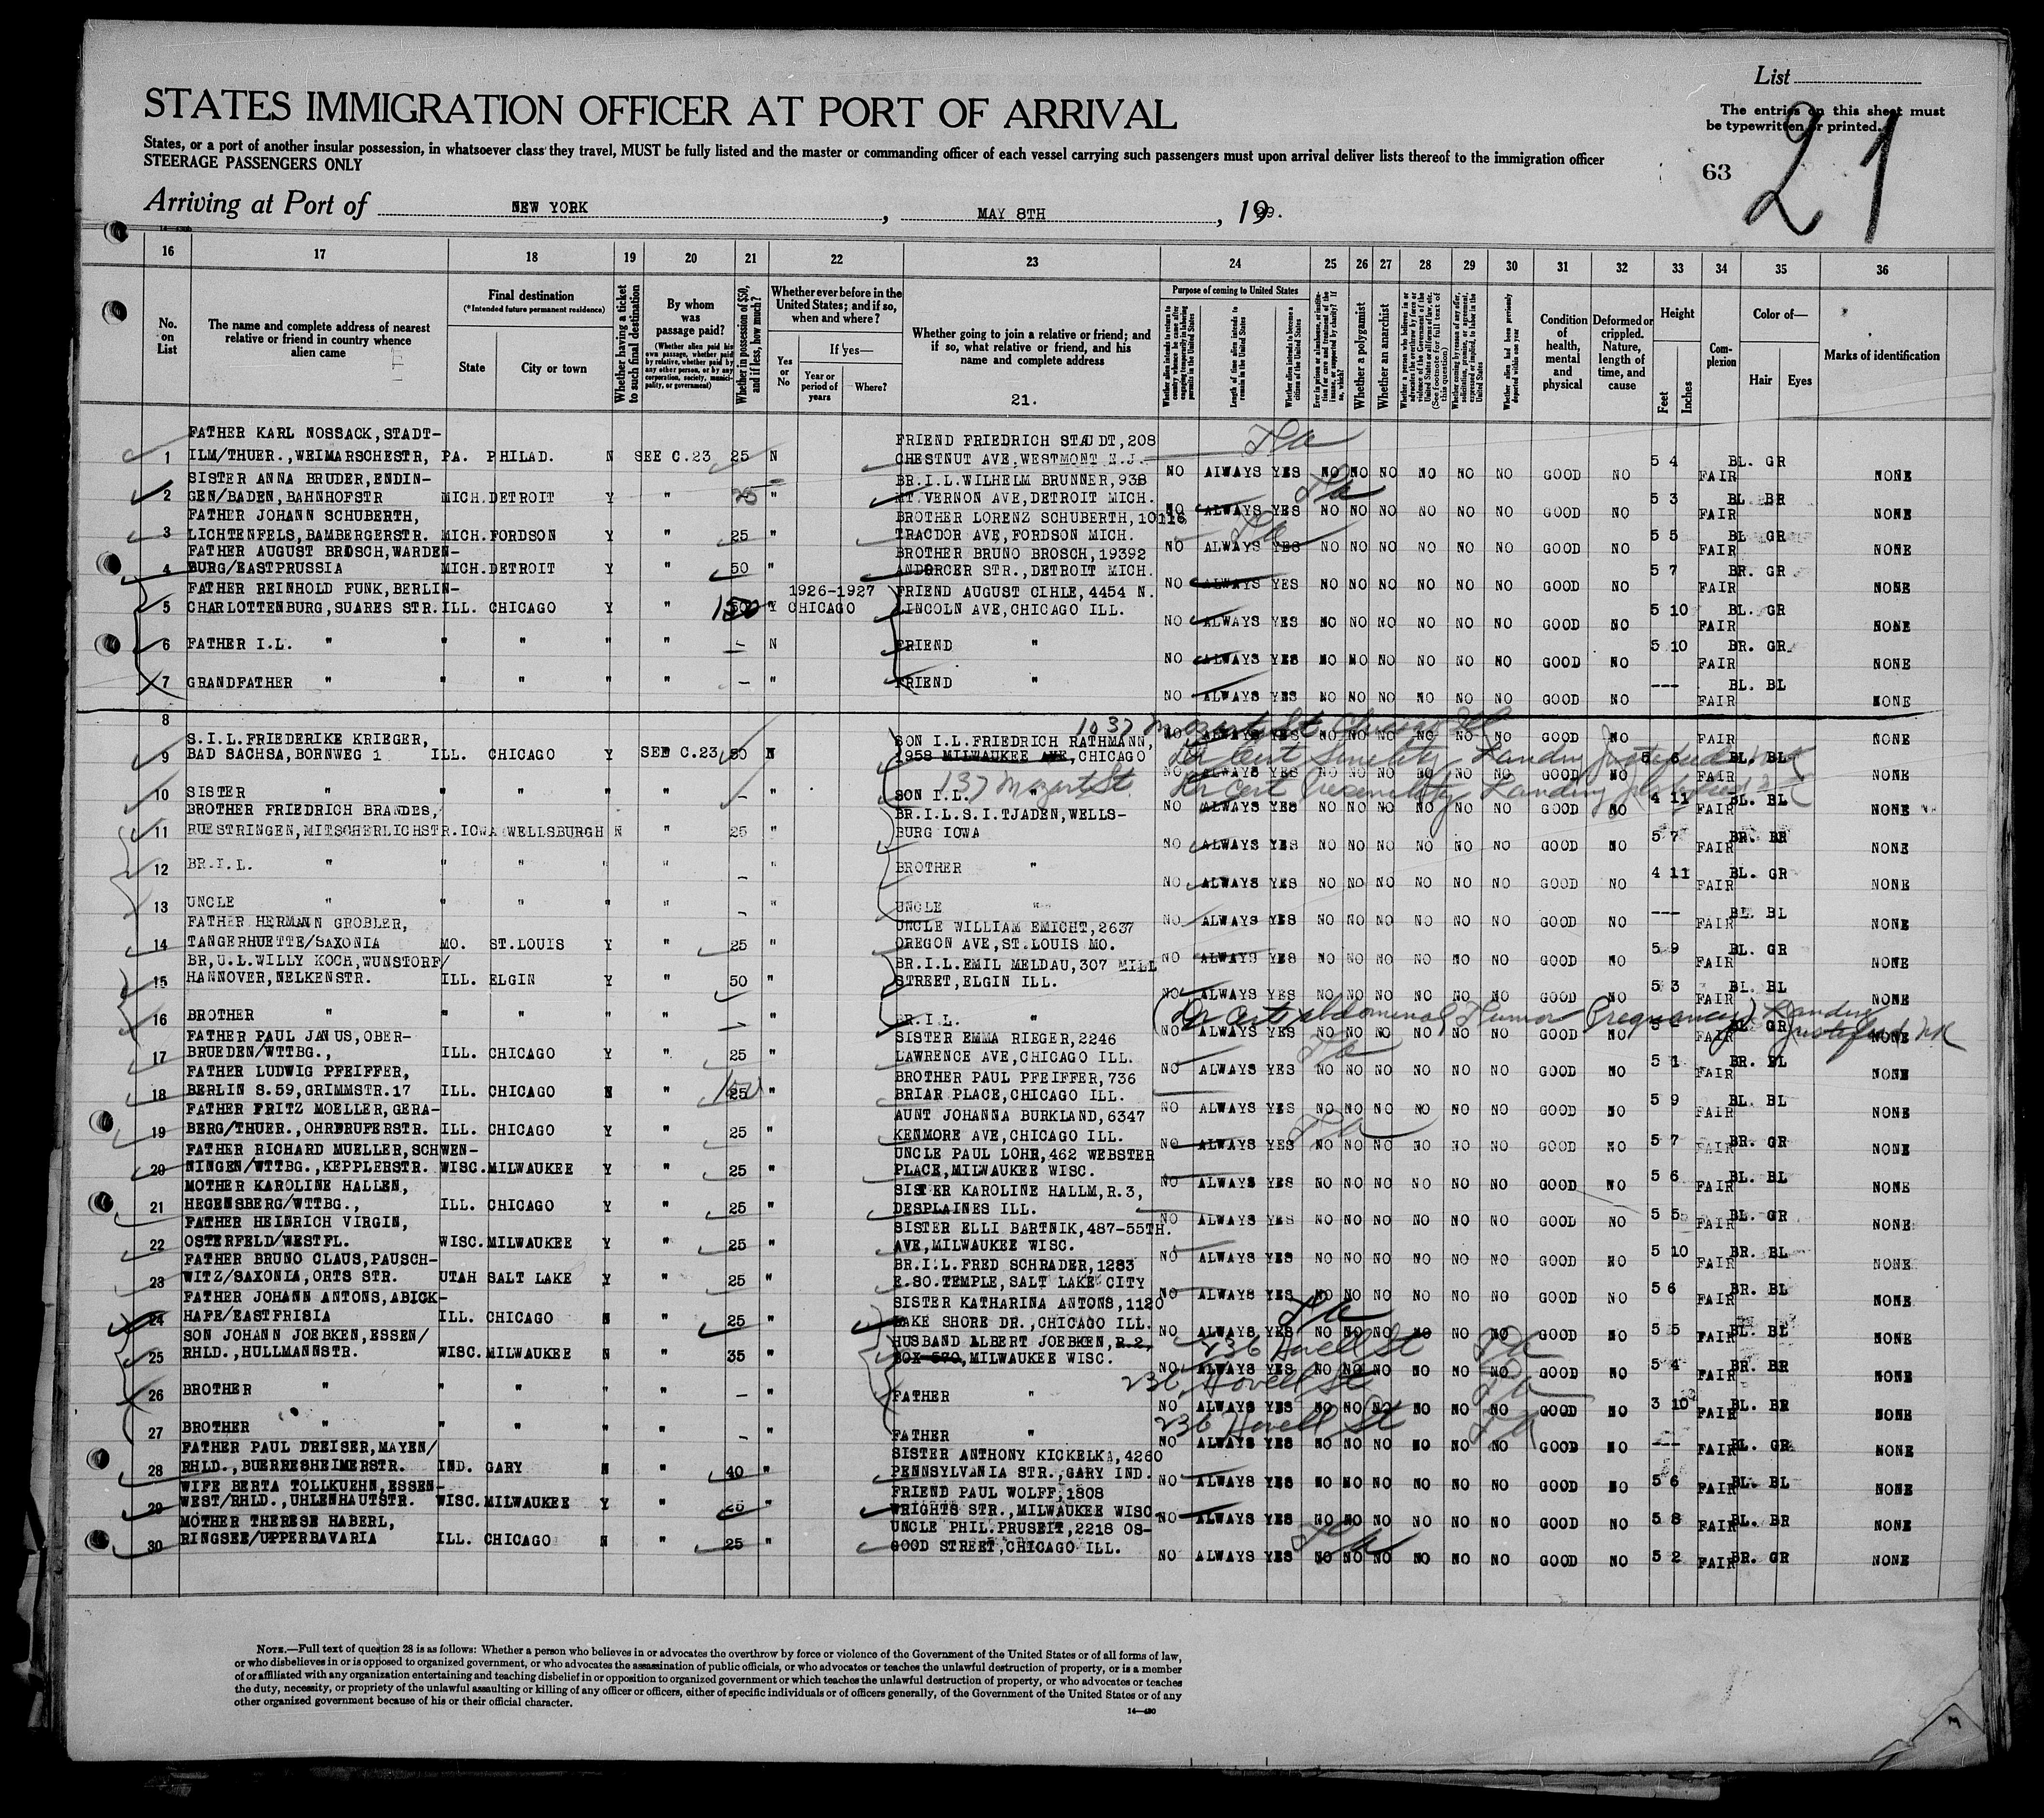 List
STATES IMMIGRATION OFFICER AT PORT OF ARRIVAL
The entries on this sheet must
be typewritten or printed.
States, or a port of another insular possession, in whatsoever class they travel, MUST be fully listed and the master or commanding officer of each vessel carrying such passengers must upon arrival deliver lists thereof to the immigration officer
STEERAGE PASSENGERS ONLY
63
21
Arriving at Port of NEW YORK, MAY 8TH, 1929.
16 17 18 19 20 21 22 23 24 25 26 27 28 29 30 31 32 33 34 35 36
No. on List
The name and complete address of nearest relative or friend in country whence alien came
Final destination
(*Intended future permanent residence)
State
City or town
Whether having a ticket to such final destination
By whom was passage paid?
(Whether alien paid his own passage, whether paid by relative, whether paid by any other person, or by any corporation, society, municipality, or government)
Whether in possession of $50, and if less, how much?
Whether ever before in the United States; and if so, when and where?
Yes or No
If yes—
Year or period of years
Where?
Whether going to join a relative or friend; and if so, what relative or friend, and his name and complete address
21.
Purpose of coming to United States
Length of time alien intends to remain in the United States
Whether alien intends to become a citizen of the United States
Whether a polygamist
Whether an anarchist
Whether alien had been previously deported within one year
Condition of health, mental and physical
Deformed or crippled. Nature, length of time, and cause
Height
Feet
Inches
Complexion
Color of—
Hair
Eyes
Marks of identification
FATHER KARL NOSSACK,STADT- FRIEND FRIEDRICH STAUDT,208
1 ILM/THUER.,WEIMARSCHESTR, PA. PHILAD. N SEE C.23 25 N CHESTNUT AVE,WESTMONT N.J.
NO ALWAYS YES NO NO NO NO NO NO GOOD NO 5 4 FAIR BL. GR NONE
SISTER ANNA BRUDER,ENDIN- BR.I.L.WILHELM BRUNNER,938
2 GEN/BADEN,BAHNHOFSTR MICH. DETROIT Y " 25 " MT.VERNON AVE,DETROIT MICH.
NO ALWAYS YES NO NO NO NO NO NO GOOD NO 5 3 FAIR BL. BR NONE
FATHER JOHANN SCHUBERTH, BROTHER LORENZ SCHUBERTH,10116
3 LICHTENFELS,BAMBERGERSTR. MICH. FORDSON Y " 25 " TRACDOR AVE,FORDSON MICH.
NO ALWAYS YES NO NO NO NO NO NO GOOD NO 5 5 FAIR BL GR NONE
FATHER AUGUST BROSCH,WARDEN- BROTHER BRUNO BROSCH,19392
4 BURG/EASTPRUSSIA MICH. DETROIT Y " 50 " ANDORCER STR.,DETROIT MICH.
NO ALWAYS YES NO NO NO NO NO NO GOOD NO 5 7 FAIR BR. GR NONE
FATHER REINHOLD FUNK,BERLIN- 1926-1927 FRIEND AUGUST CIHLE,4454 N.
5 CHARLOTTENBURG,SUARES STR. ILL. CHICAGO Y " 150 Y CHICAGO LINCOLN AVE,CHICAGO ILL.
NO ALWAYS YES NO NO NO NO NO NO GOOD NO 5 10 FAIR BL. GR NONE
6 FATHER I.L. " " " " " - N FRIEND "
NO ALWAYS YES NO NO NO NO NO NO GOOD NO 5 10 FAIR BR. GR. NONE
7 GRANDFATHER " " " " " - " FRIEND "
NO ALWAYS YES NO NO NO NO NO NO GOOD NO --- FAIR BL. BL NONE
8
1037 Mozart St Chicago Ill
NO ALWAYS YES NO NO NO NO NO NO GOOD NO FAIR NONE
S.I.L.FRIEDERIKE KRIEGER, SON I.L.FRIEDRICH RATHMANN,
9 BAD SACHSA,BORNWEG 1 ILL. CHICAGO Y SEE C.23 50 N 1958 MILWAUKEE AVE,CHICAGO
Dr cert Senility Landing Justified
NO ALWAYS YES NO NO NO NO NO NO GOOD NO 5 6 FAIR BL. BL NONE
137 Mozart St.
10 SISTER " " " " " - " SON I.L. "
Dr cert Presenility Landing Justified
NO ALWAYS YES NO NO NO NO NO NO GOOD NO 4 11 FAIR BL. BL NONE
BROTHER FRIEDRICH BRANDES, BR.I.L.S.I.TJADEN,WELLS-
11 RUESTRINGEN,MITSCHERLICHSTR. IOWA WELLSBURGH N " 25 " BURG IOWA
NO ALWAYS YES NO NO NO NO NO NO GOOD NO 5 7 FAIR BR. BR NONE
12 BR.I.L. " " " " " - " BROTHER "
NO ALWAYS YES NO NO NO NO NO NO GOOD NO 4 11 FAIR BL. GR NONE
13 UNCLE " " " " " - " UNCLE "
NO ALWAYS YES NO NO NO NO NO NO GOOD NO --- FAIR BL. BL NONE
FATHER HERMANN GROBLER, UNCLE WILLIAM EMICHT,2637
14 TANGERHUETTE/SAXONIA MO. ST.LOUIS Y " 25 " OREGON AVE,ST.LOUIS MO.
NO ALWAYS YES NO NO NO NO NO NO GOOD NO 5 9 FAIR BL. GR NONE
BR,U.L.WILLY KOCH,WUNSTORF/ BR.I.L.EMIL MELDAU,307 MILL
15 HANNOVER,NELKENSTR. ILL. ELGIN Y " 50 " STREET,ELGIN ILL.
NO ALWAYS YES NO NO NO NO NO NO GOOD NO 5 3 FAIR BL. BL NONE
16 BROTHER " " " " " - " BR.I.L. "
(Dr cert abdominal Tumor (Pregnancy) Landing justified
NO ALWAYS YES NO NO NO NO NO NO GOOD NO FAIR BL. GR NONE
FATHER PAUL JANUS,OBER- SISTER EMMA RIEGER,2246
17 BRUEDEN/WTTBG., ILL. CHICAGO Y " 25 " LAWRENCE AVE,CHICAGO ILL.
NO ALWAYS YES NO NO NO NO NO NO GOOD NO 5 1 FAIR BR. BL NONE
FATHER LUDWIG PFEIFFER, BROTHER PAUL PFEIFFER,736
18 BERLIN S.59,GRIMMSTR.17 ILL. CHICAGO N " 25 " BRIAR PLACE,CHICAGO ILL.
NO ALWAYS YES NO NO NO NO NO NO GOOD NO 5 9 FAIR BL. BL NONE
FATHER FRITZ MOELLER,GERA- AUNT JOHANNA BURKLAND,6347
19 BERG/THUER.,OHRDRUFERSTR. ILL. CHICAGO Y " 25 " KENMORE AVE,CHICAGO ILL.
NO ALWAYS YES NO NO NO NO NO NO GOOD NO 5 7 FAIR BR. GR NONE
FATHER RICHARD MUELLER,SCHWEN- UNCLE PAUL LOHR,462 WEBSTER
20 NINGEN/WTTBG.,KEPPLERSTR. WISC. MILWAUKEE Y " 25 " PLACE,MILWAUKEE WISC.
NO ALWAYS YES NO NO NO NO NO NO GOOD NO 5 6 FAIR BL. BL NONE
MOTHER KAROLINE HALLEN, SISTER KAROLINE HALLM,R.3,
21 HEGENSBERG/WTTBG., ILL. CHICAGO Y " 25 " DESPLAINES ILL.
NO ALWAYS YES NO NO NO NO NO NO GOOD NO 5 5 FAIR BL. GR NONE
FATHER HEINRICH VIRGIN, SISTER ELLI BARTNIK,487-55TH.
22 OSTERFELD/WESTFL. WISC. MILWAUKEE Y " 25 " AVE,MILWAUKEE WISC.
NO ALWAYS YES NO NO NO NO NO NO GOOD NO 5 10 FAIR BR. BL NONE
FATHER BRUNO CLAUS,PAUSCH- BR.I.L.FRED SCHRADER,1283
23 WITZ/SAXONIA,ORTS STR. UTAH SALT LAKE Y " 25 " E.SO.TEMPLE,SALT LAKE CITY
NO ALWAYS YES NO NO NO NO NO NO GOOD NO 5 6 FAIR BR. BL NONE
FATHER JOHANN ANTONS,ABICK- SISTER KATHARINA ANTONS,1120
24 HAFE/EASTFRISIA ILL. CHICAGO N " 25 " LAKE SHORE DR.,CHICAGO ILL.
NO ALWAYS YES NO NO NO NO NO NO GOOD NO 5 5 FAIR BL. BL NONE
SON JOHANN JOEBKEN,ESSEN/ HUSBAND ALBERT JOEBKEN,R.2, 236 Howell St
25 RHLD.,HULLMANNSTR. WISC. MILWAUKEE N " 35 " BOX 570,MILWAUKEE WISC.
NO ALWAYS YES NO NO NO NO NO NO GOOD NO 5 4 FAIR BR. BR NONE
26 BROTHER " " " " " - " FATHER " 236 Howell St
NO ALWAYS YES NO NO NO NO NO NO GOOD NO 3 10 FAIR BL. BR NONE
27 BROTHER " " " " " - " FATHER " 236 Howell St
NO ALWAYS YES NO NO NO NO NO NO GOOD NO --- FAIR BL. GR NONE
FATHER PAUL DREISER,MAYEN/ SISTER ANTHONY KICKELKA,4260
28 RHLD.,BUERRESHEIMERSTR. IND. GARY N " 40 " PENNSYLVANIA STR.,GARY IND.
NO ALWAYS YES NO NO NO NO NO NO GOOD NO 5 6 FAIR BL. BL NONE
WIFE BERTA TOLLKUEHN,ESSEN- FRIEND PAUL WOLFF,1808
29 WEST/RHLD.,UHLENHAUTSTR. WISC. MILWAUKEE Y " 25 " WRIGHTS STR.,MILWAUKEE WISC
NO ALWAYS YES NO NO NO NO NO NO GOOD NO 5 8 FAIR BL. BR NONE
MOTHER THERESE HABERL, UNCLE PHIL.PRUSEIT,2218 OS-
30 RINGSEE/UPPERBAVARIA ILL. CHICAGO N " 25 " GOOD STREET,CHICAGO ILL.
NO ALWAYS YES NO NO NO NO NO NO GOOD NO 5 2 FAIR BR. GR NONE
NOTE.—Full text of question 28 is as follows: Whether a person who believes in or advocates the overthrow by force or violence of the Government of the United States or of all forms of law,
or who disbelieves in or is opposed to organized government, or who advocates the assassination of public officials, or who advocates or teaches the unlawful destruction of property, or is a member
of or affiliated with any organization entertaining and teaching disbelief in or opposition to organized government or which teaches the unlawful destruction of property, or who advocates or teaches
the duty, necessity, or propriety of the unlawful assaulting or killing of any officer or officers, either of specific individuals or of officers generally, of the Government of the United States or of any
other organized government because of his or their official character.
14—430